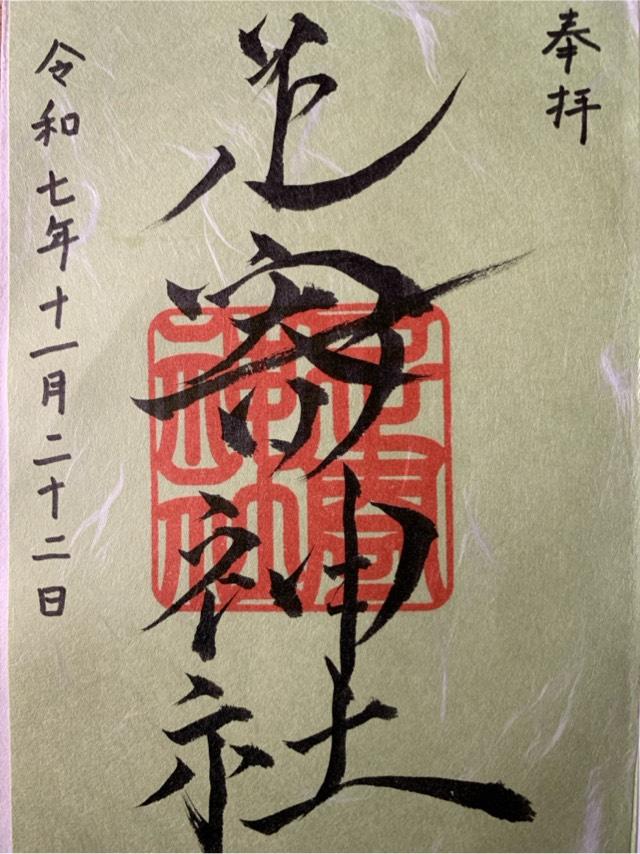 奉拝
神社
令和七年十一月二十二日